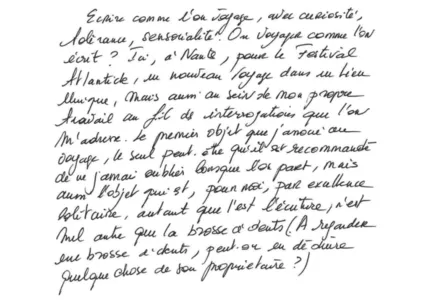 Ecrire comme l'on voyage, avec curiosité,
tolérance, sensorialité. Ou voyager comme l'on
écrit ? Ici, à Nantes, pour le Festival
Atlantide, un nouveau voyage dans un lieu
unique, mais aussi au sein de mon propre
travail au fil de interrogations que l'on
m'adresse. Le premier objet que j'associe au
voyage, le seul peut-être qu'il est recommandé
de ne jamais oublier lorsque l'on part, mais
aussi l'objet qui est, pour moi, par excellence
solitaire, autant que l'est l'écriture, n'est
nul autre que la brosse à dents (A regarder
une brosse à dents, peut-on en déduire
quelque chose de son propriétaire ?)